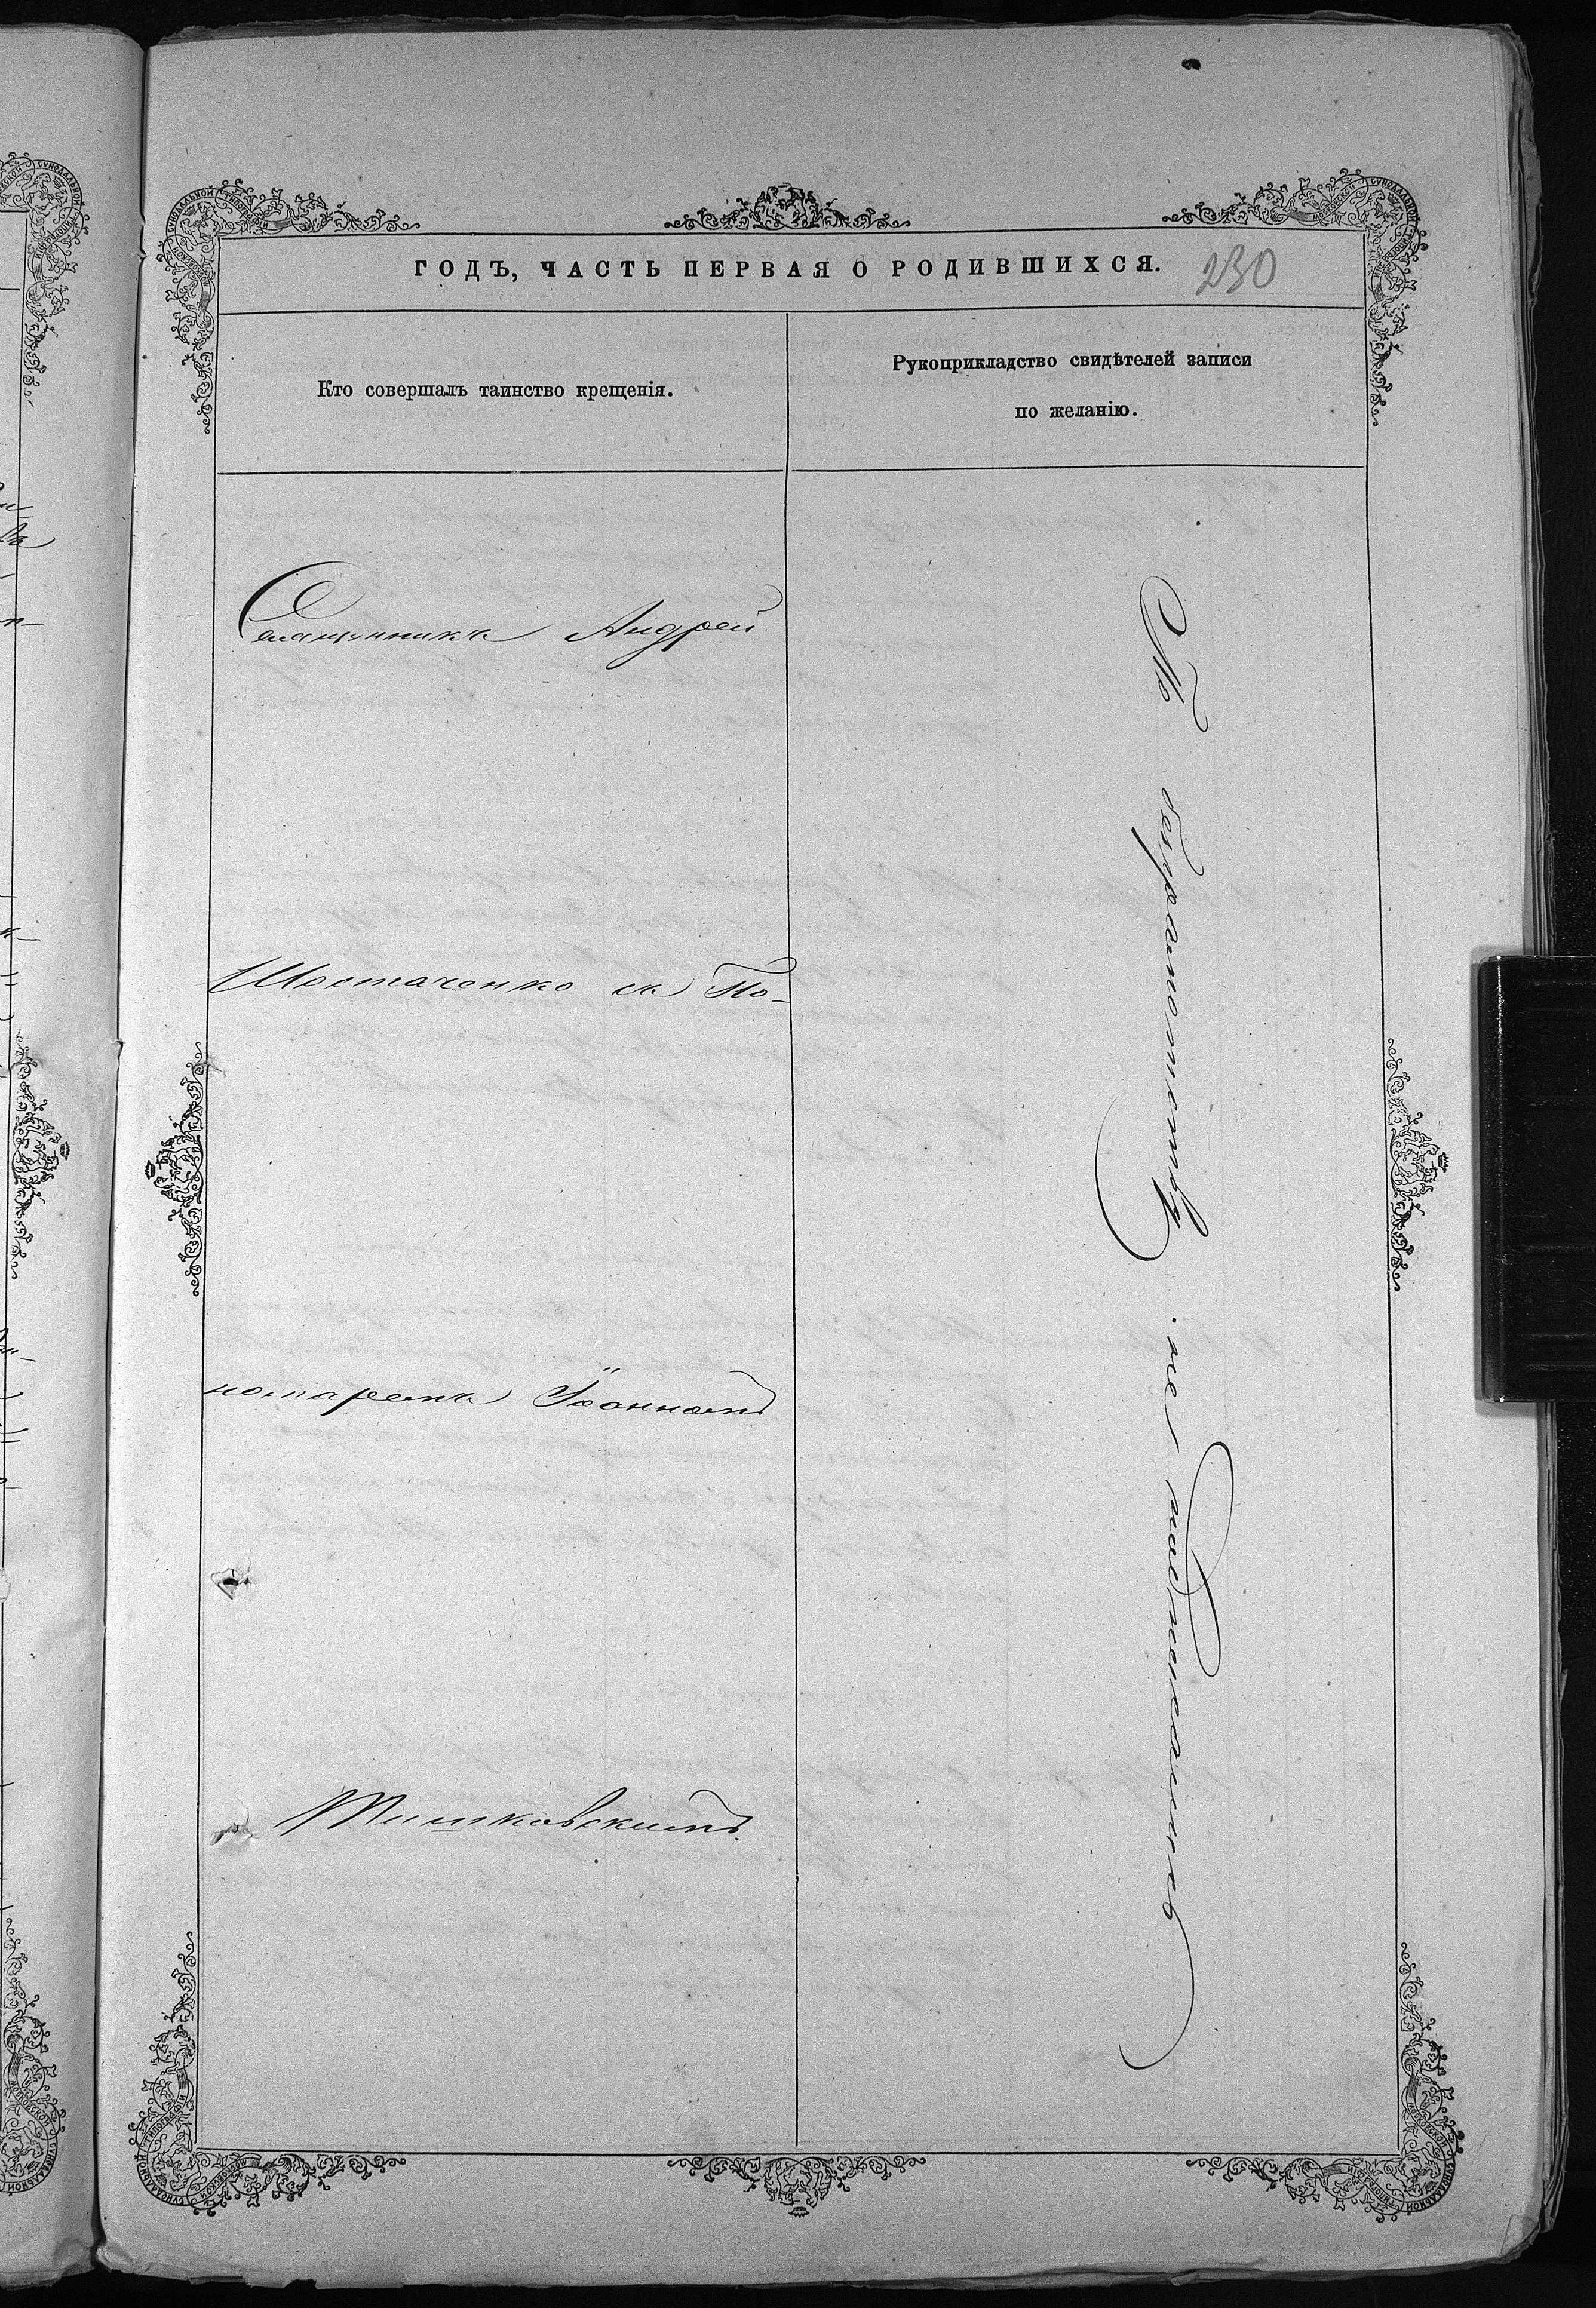 ГОДЪ, ЧАСТЬ ПЕРВАЯ О РОДИВШИХСЯ.
230
Кто совершалъ таинство крещенія.
Рукоприкладство свидѣтелей записи
по желанію.
Священникъ Андрей
Шостаченко съ По-
номаремъ Іоанномъ
Тишковскимъ.
По безграмотству не подписались